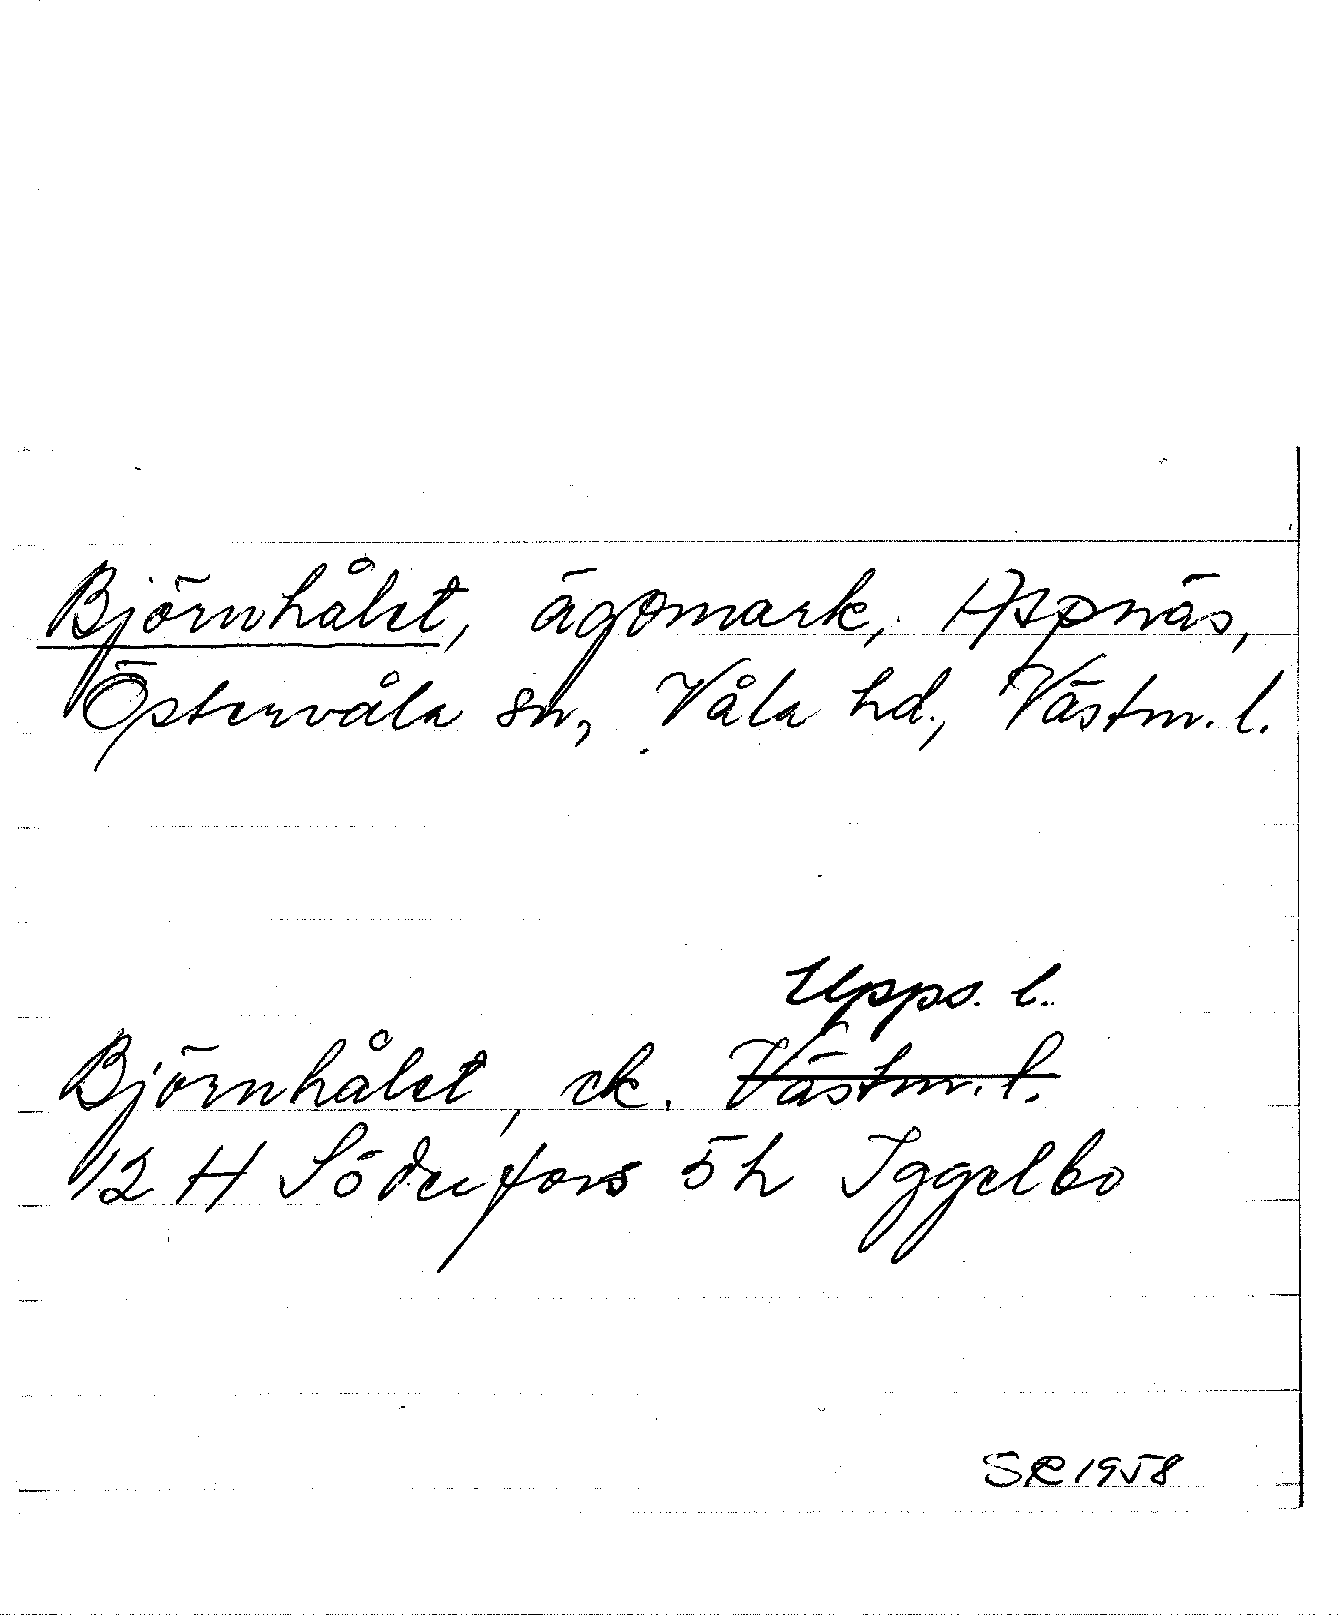 Björnhålet, ägomark, Aspnäs,
Östervåla sn, Våla hd., Västm. l.
Upps. l.
Björnhålet, ek. Västm. l.
12 H Söderfors 5h Iggelbo
SR 1958